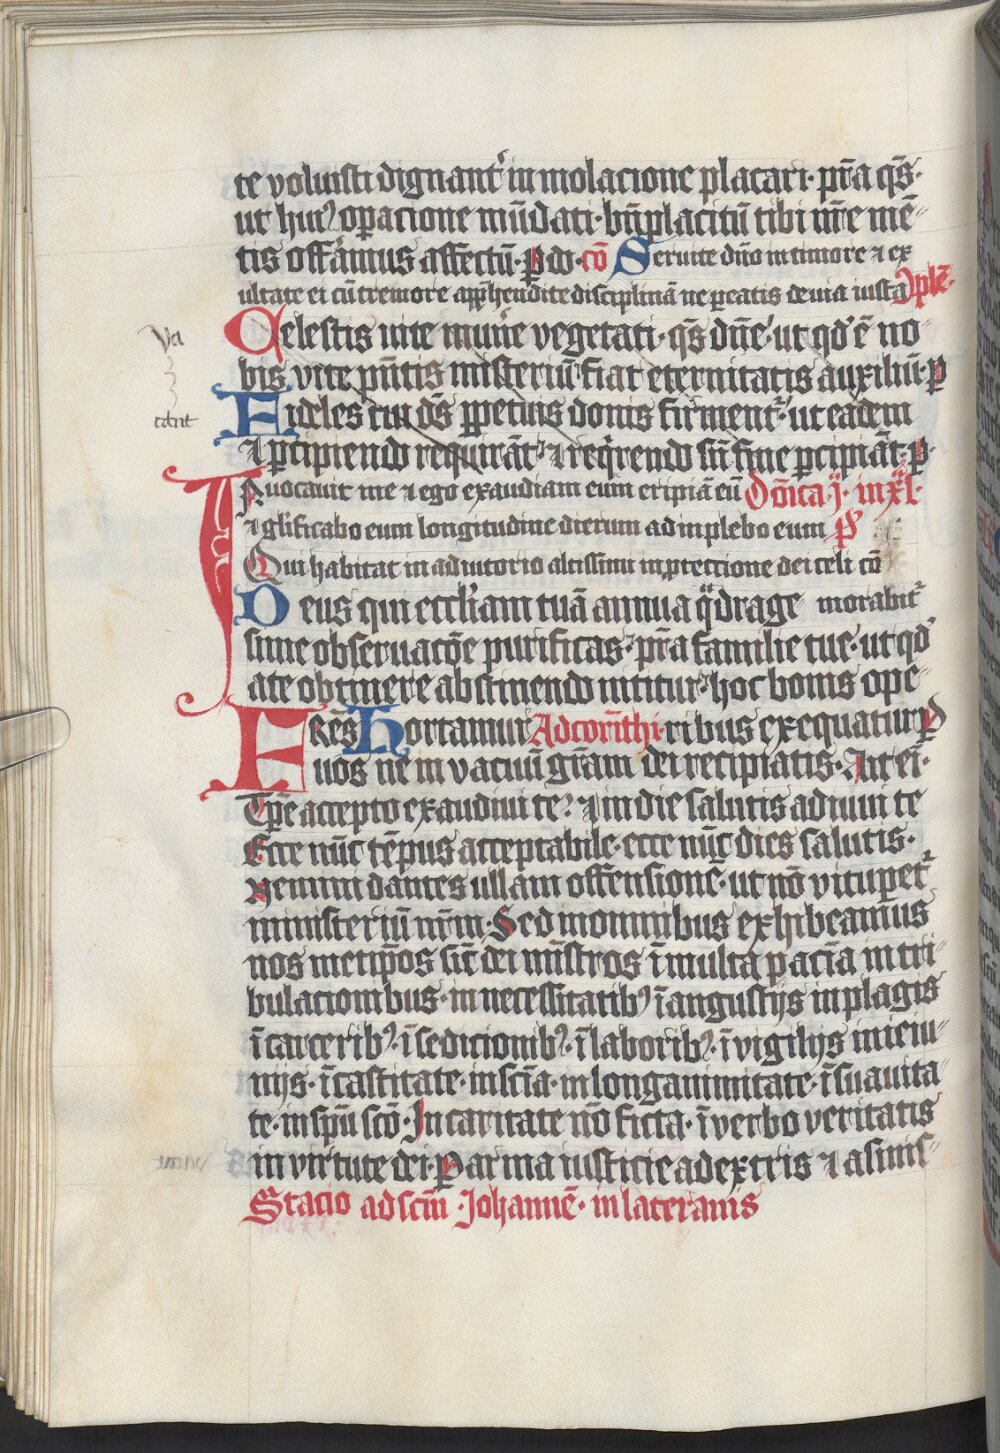 te voluisti dignant᷑ in molacione placari· pr̄a qs̄·
ut hui⁹ opacione mūdati· bn̄placitū tibi nr̄e mē
tis offamus affectū· p do· cō Seruite dn̄o in timore ⁊ ex
ultate ei cū tremore appͬhendite disciplinā ne peatis de uia iusta Cplē
Celestis uite mune vegetati· qs̄ dn̄e· ut qd̓ ē no
Va
bis vite pn̄tis misteriū· fiat eternitatis auxiliū· p
Fideles tui ds̄ ppetuis donis firment᷑· ut eadem
⁊ pcipiendo requirāt· ⁊ reqͥrendo sū fine pcipiāt· p·
Inuocauit me ⁊ ego exaudiam eum eripiā eū Dn̄ica ·j· in xl·
⁊ gl̓ificabo eum longitudine dierum adinplebo eum pͣ
Qui habitat in adiutorio altissimi in ptectione dei celi cō
Deus qui eccl̓iam tuā annua qͣdrage morabit᷑
sime obseruacōe purificas· pr̄a familie tue· ut qd̓
a te obtinere abstinendo nititur· hoc bonis ope
Fr̄es Hortamur Ad corīthi· ribus exequatur p
uos ne in vacuū gr̄am dei recipiatis· Ait ei̅·
Tp̄e accepto exaudiui te· ⁊ in die salutis adiuui te
Ecce nūc tēpus acceptabile· ecce nūc dies salutis·
Nemini dantes ullam offensionē· ut nō vitupet᷑
ministeriū nr̄m· Sed in omnibus exhibeamus
nos metip̄os sic̄ dei mīstros ī multa pacīa in tri
bulacionibus· in necessitatib⁹ ī angustijs in plagis
ī carcerib⁹· ī sedicionib⁹· ī laborib⁹· ī vigilijs in ieiu
nijs· ī castitate· in scīa· in longanimitate· ī suauita
te· in spū scō· In caritate nō ficta· ī verbo veritatis
in virtute dei· P arma iusticie a dextris ⁊ a sinis
Stacio ad scm̄ Johannē· in lateranis